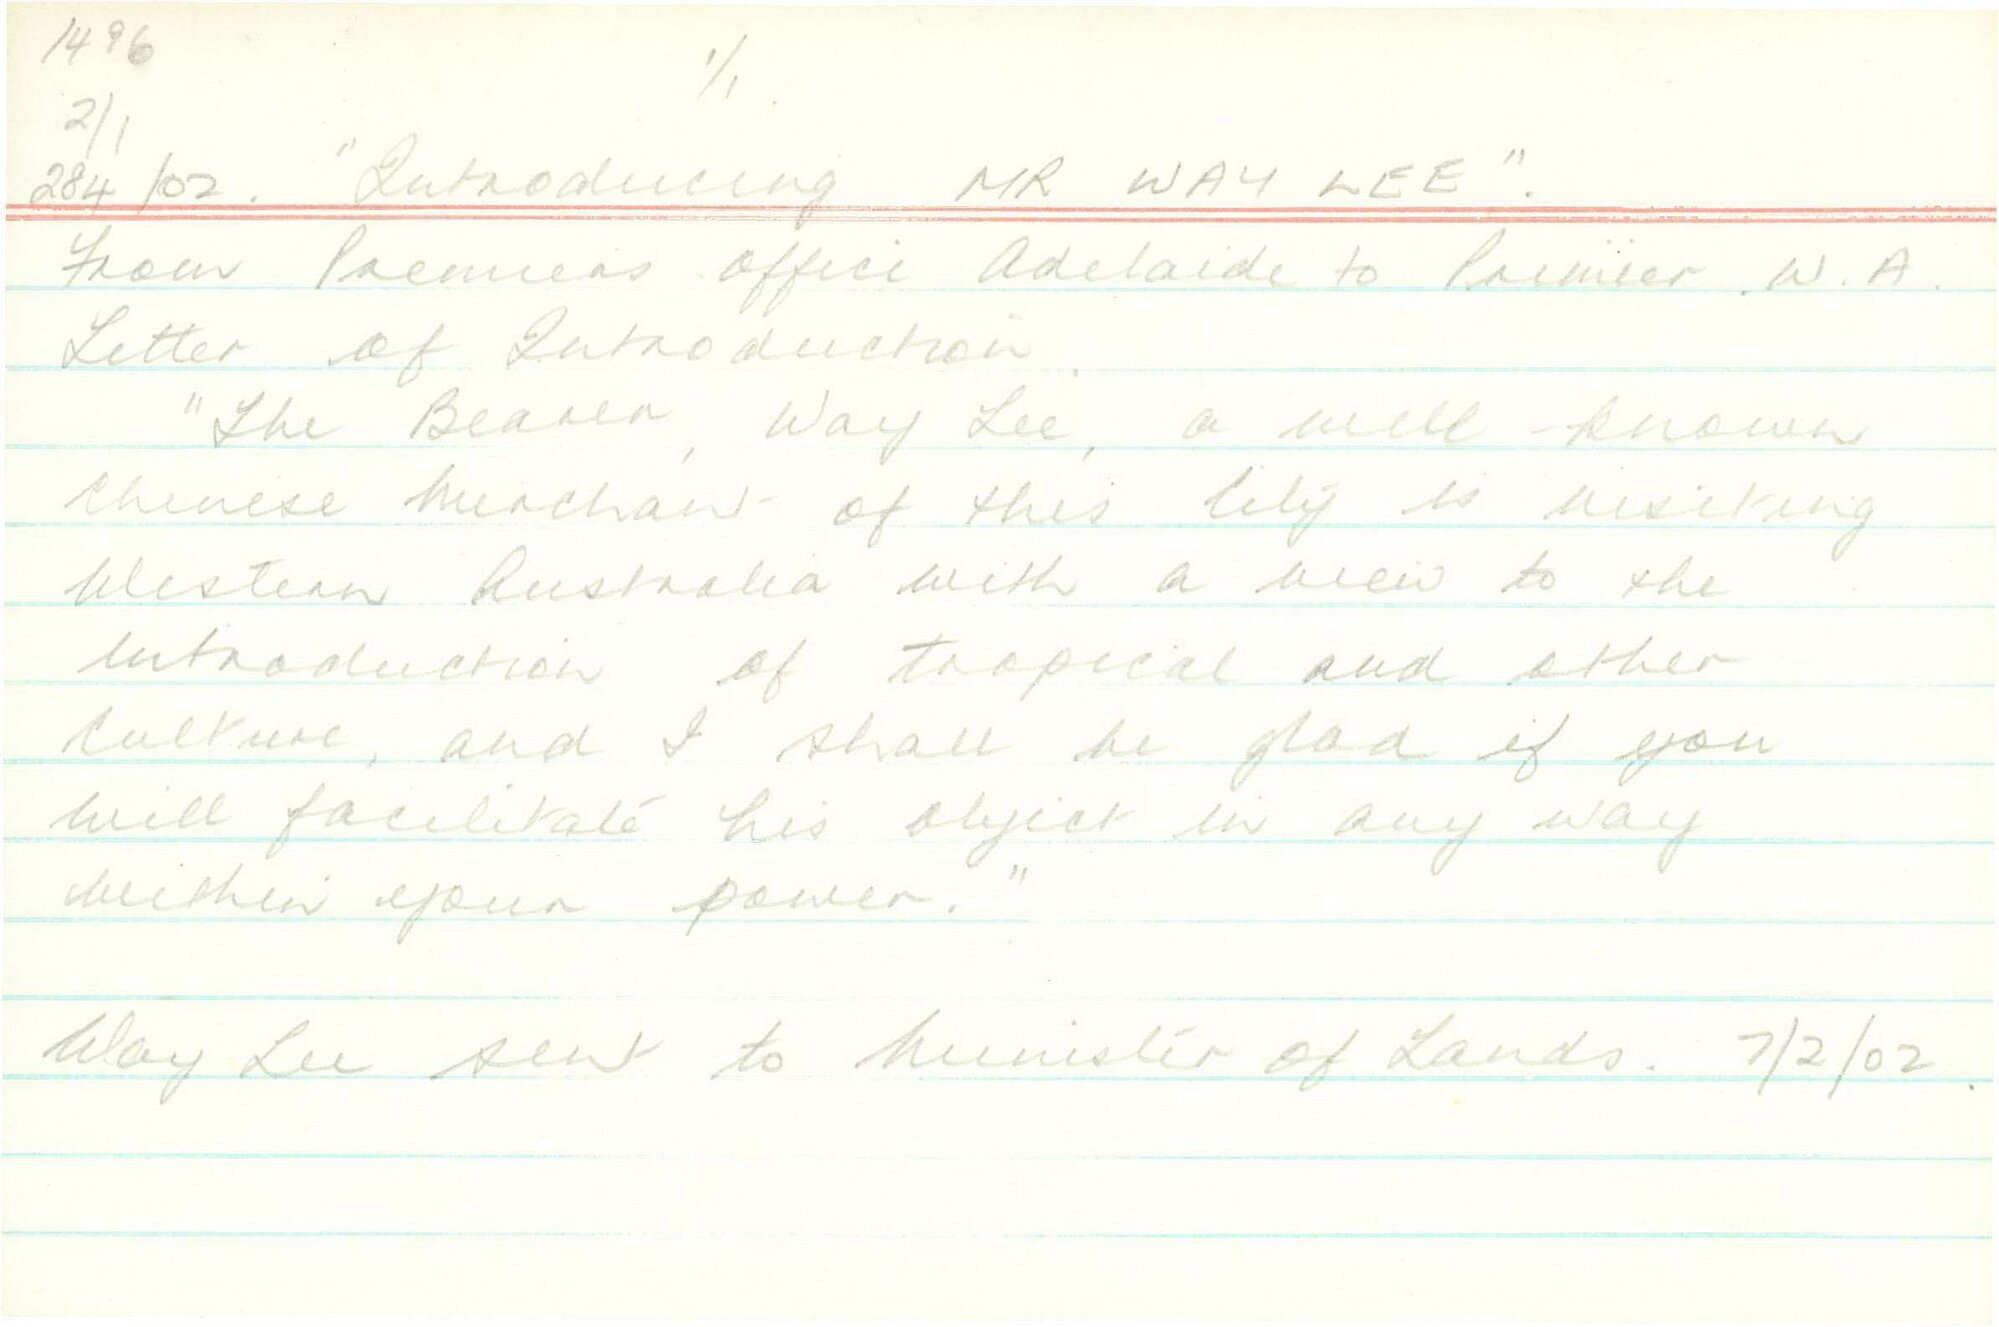 1496
1/1.
2/1
284/02. "Introducing MR WAY LEE".
From Premiers office Adelaide to Premier W.A.
Letter of Introduction.
"The Bearer, Way Lee, a well-known
Chinese Merchant of this City is visiting
Western Australia with a view to the
introduction of tropical and other
culture, and I shall be glad if you
will facilitate his object in any way
within your power."
Way Lee sent to Minister of Lands. 7/2/02.